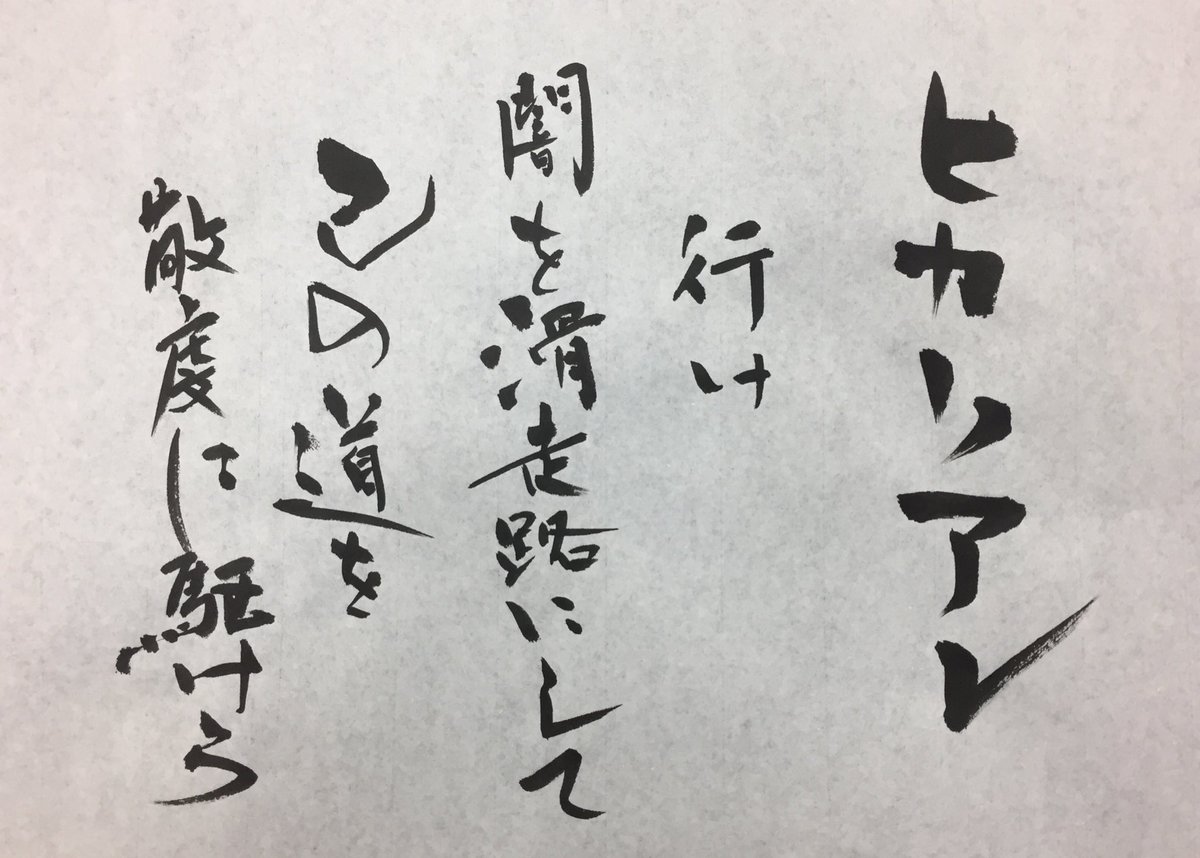 ヒカリアレ
行け
闇を滑走路にして
己の道を
敬虔に駆けろ